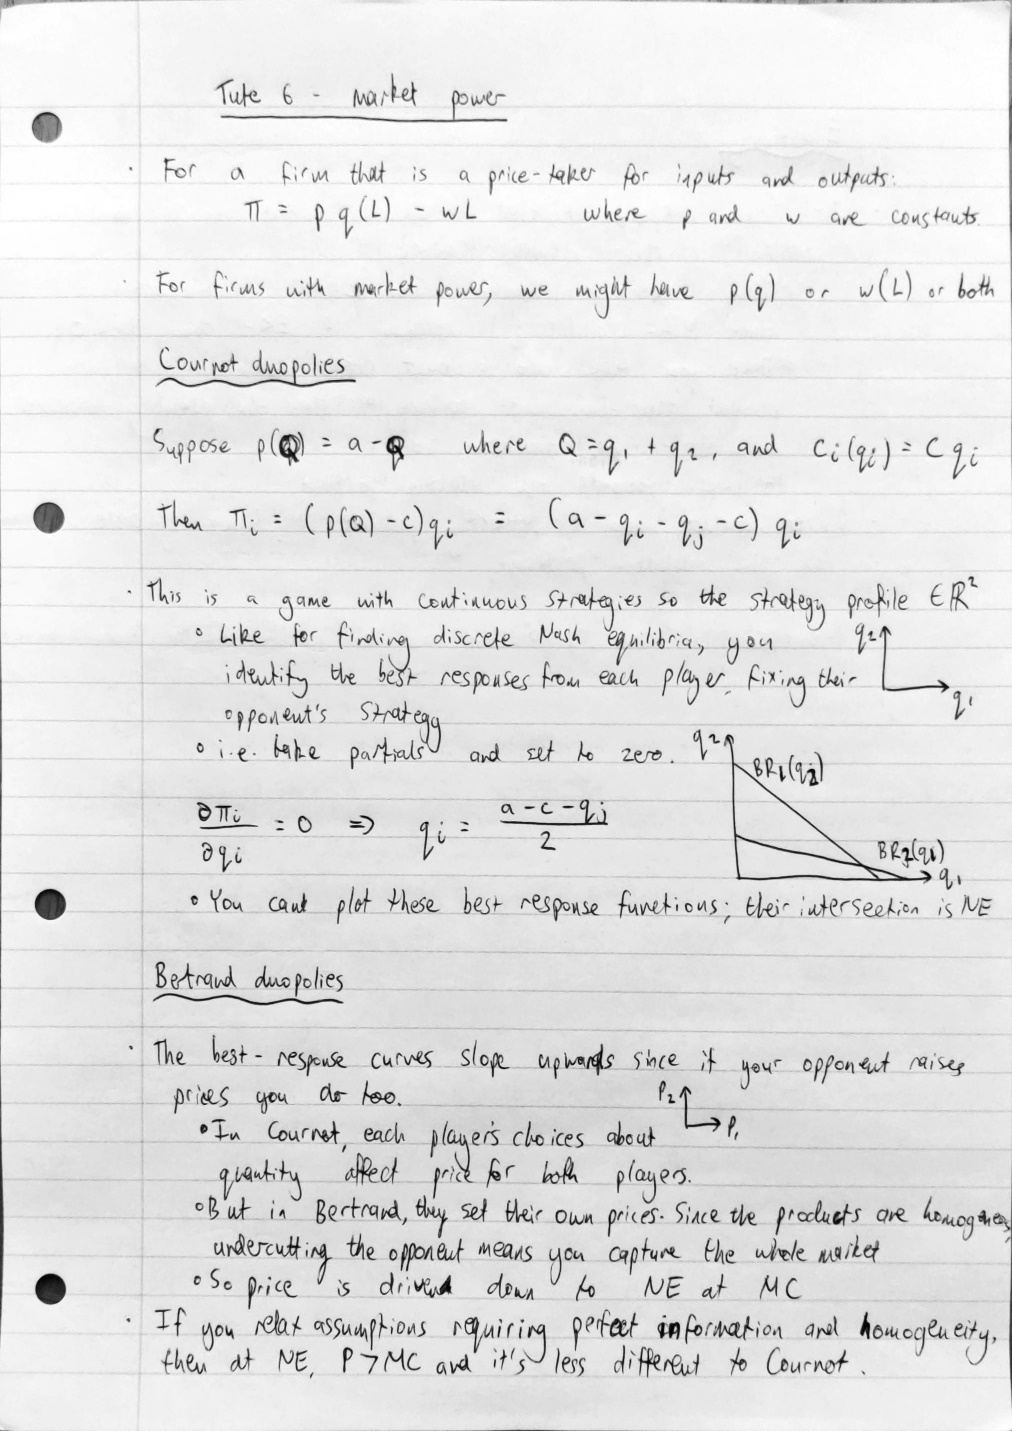 Tute 6 - market power
· For a firm that is a price-taker for inputs and outputs:
π = p q(L) - wL where p and w are constants.
· For firms with market power, we might have p(q) or w(L) or both
Cournot duopolies
Suppose p(Q) = a - Q where Q = q₁ + q₂, and Cᵢ(qᵢ) = C qᵢ
Then πᵢ = (p(Q) - c)qᵢ = (a - qᵢ - qⱼ - c) qᵢ
· This is a game with continuous strategies so the strategy profile ∈ ℝ²
∘ Like for finding discrete Nash equilibria, you
identify the best responses from each player, fixing their
opponent's strategy
q₂
q₁
∘ i.e. take partials and set to zero.
∂πᵢ/∂qᵢ = 0 ⇒ qᵢ = (a - c - qⱼ)/2
q₂
BR₁(q₂)
BR₂(q₁)
q₁
∘ You can plot these best response functions; their intersection is NE
Bertrand duopolies
· The best-response curves slope upwards since if your opponent raises
prices you do too.
P₂
P₁
∘ In Cournot, each player's choices about
quantity affect price for both players.
∘ But in Bertrand, they set their own prices. Since the products are homogeneous,
undercutting the opponent means you capture the whole market
∘ So price is driven down to NE at MC
· If you relax assumptions requiring perfect information and homogeneity,
then at NE, P > MC and it's less different to Cournot.